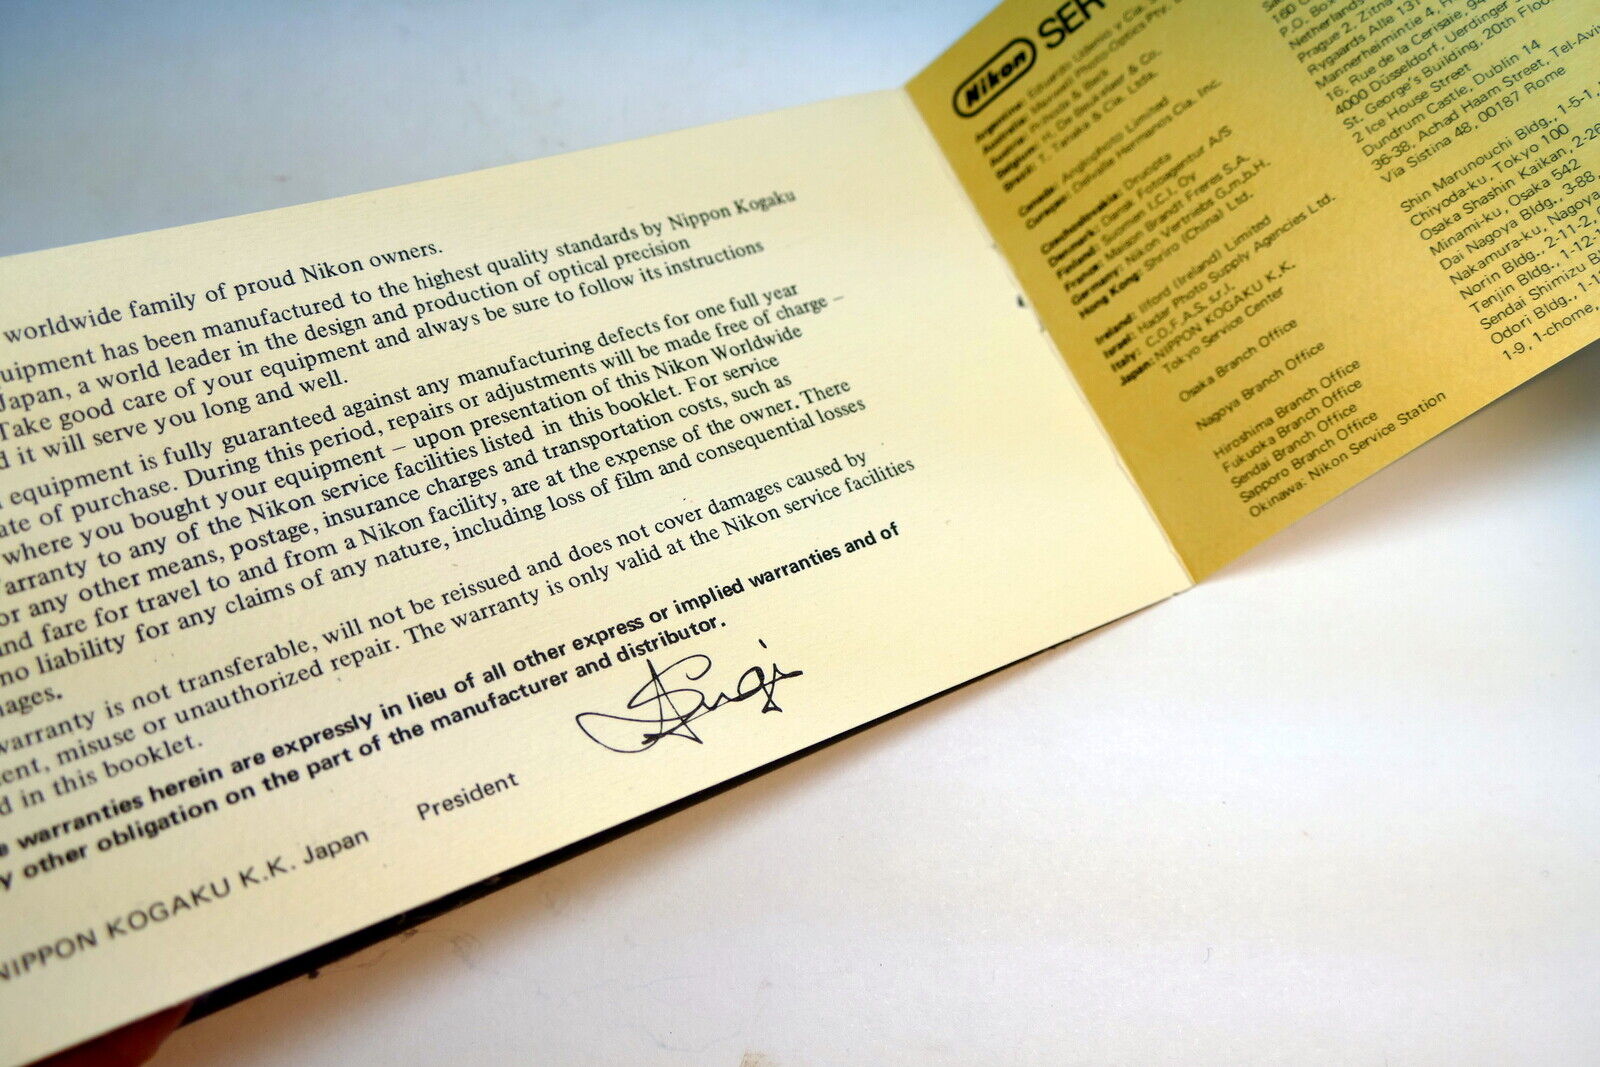 worldwide family of proud Nikon owners.
uipment has been manufactured to the highest quality standards by Nippon Kogaku
Japan, a world leader in the design and production of optical precision
Take good care of your equipment and always be sure to follow its instructions
d it will serve you long and well.
equipment is fully guaranteed against any manufacturing defects for one full year
ate of purchase. During this period, repairs or adjustments will be made free of charge –
where you bought your equipment – upon presentation of this Nikon Worldwide
arranty to any of the Nikon service facilities listed in this booklet. For service
or any other means, postage, insurance charges and transportation costs, such as
nd fare for travel to and from a Nikon facility, are at the expense of the owner. There
no liability for any claims of any nature, including loss of film and consequential losses
ages.
warranty is not transferable, will not be reissued and does not cover damages caused by
ent, misuse or unauthorized repair. The warranty is only valid at the Nikon service facilities
d in this booklet.
e warranties herein are expressly in lieu of all other express or implied warranties and of
y other obligation on the part of the manufacturer and distributor.
NIPPON KOGAKU K.K. Japan President
Nikon SER
Canada: Anglophoto Limited
Czechoslovakia: Drupola
Denmark: Dansk Fotoagentur A/S
Finland: Suomen I.C.I. Oy
France: Maison Brandt Freres S.A.
Germany: Nikon Vertriebs G.m.b.H.
Hong Kong: Shriro (China) Ltd.
Ireland: Ilford (Ireland) Limited
Israel: Hadar Photo Supply Agencies Ltd.
Italy: C.O.F.A.S., s.r.l.
Japan: NIPPON KOGAKU K.K.
Tokyo Service Center
Osaka Branch Office
Nagoya Branch Office
Hiroshima Branch Office
Fukuoka Branch Office
Sendai Branch Office
Sapporo Branch Office
Okinawa: Nikon Service Station
P.O. Box
Netherlands
Prague 2, Zitna
Rygaards Alle 131
Mannerheimintie 4, H
16, Rue de la Cerisaie, 94
4000 Düsseldorf, Uerdinger S
St. George's Building, 20th Floo
2 Ice House Street
Dundrum Castle, Dublin 14
36-38, Achad Haam Street, Tel-Avi
Via Sistina 48, 00187 Rome
Shin Marunouchi Bldg., 1-5-1,
Chiyoda-ku, Tokyo 100
Osaka Shashin Kaikan, 2-26
Minami-ku, Osaka 542
Dai Nagoya Bldg., 3-88,
Nakamura-ku, Nagoya
Norin Bldg., 2-11-2,
Tenjin Bldg., 1-12-1
Sendai Shimizu B
Odori Bldg., 1-1
1-9, 1-chome,